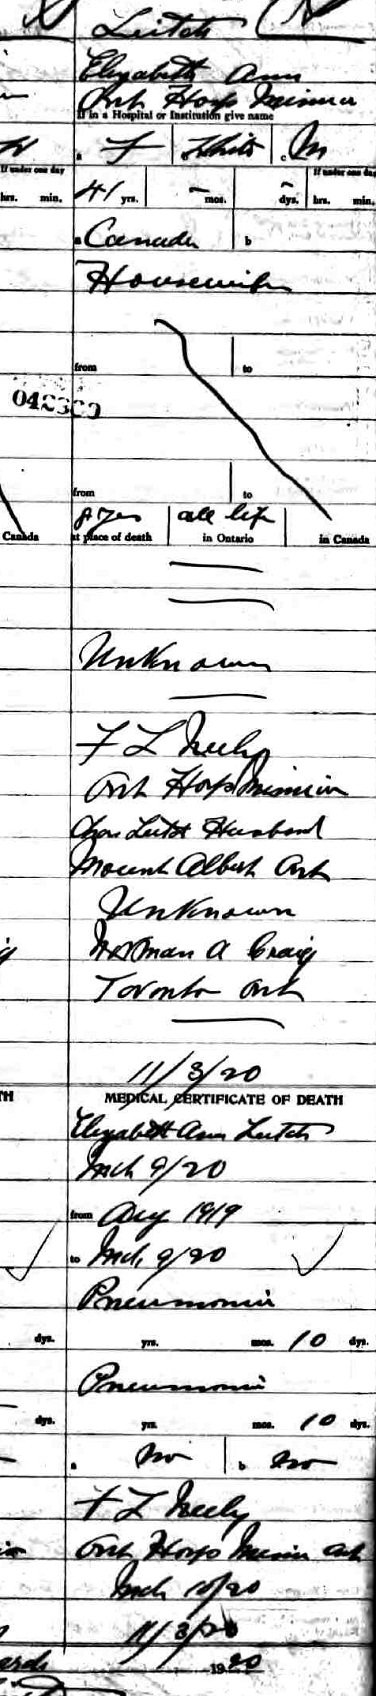 Leitch
Elizabeth Ann
Ont Hosp Mimico
If in a Hospital or Institution give name
a F White c M
If under one day If under one day
hrs. min. 41 yrs. — mos. — dys. hrs. min.
a Canada b
Housewife
from to
from to
8 yrs all life
Canada at place of death in Ontario in Canada
Unknown
F L Neely
Ont Hosp Mimico
Chas Leitch Husband
Mount Albert Ont
Unknown
Norman A Craig
Toronto Ont
11/3/20
MEDICAL CERTIFICATE OF DEATH
Elizabeth Ann Leitch
Mch 9/20
from Aug 1919
to Mch 9/20
Pneumonia
dys. yrs. mos. 10 dys.
Pneumonia
dys. yrs. mos. 10 dys.
a No b No
F L Neely
Ont Hosp Mimico Ont
Mch 10/20
11/3/20
1920